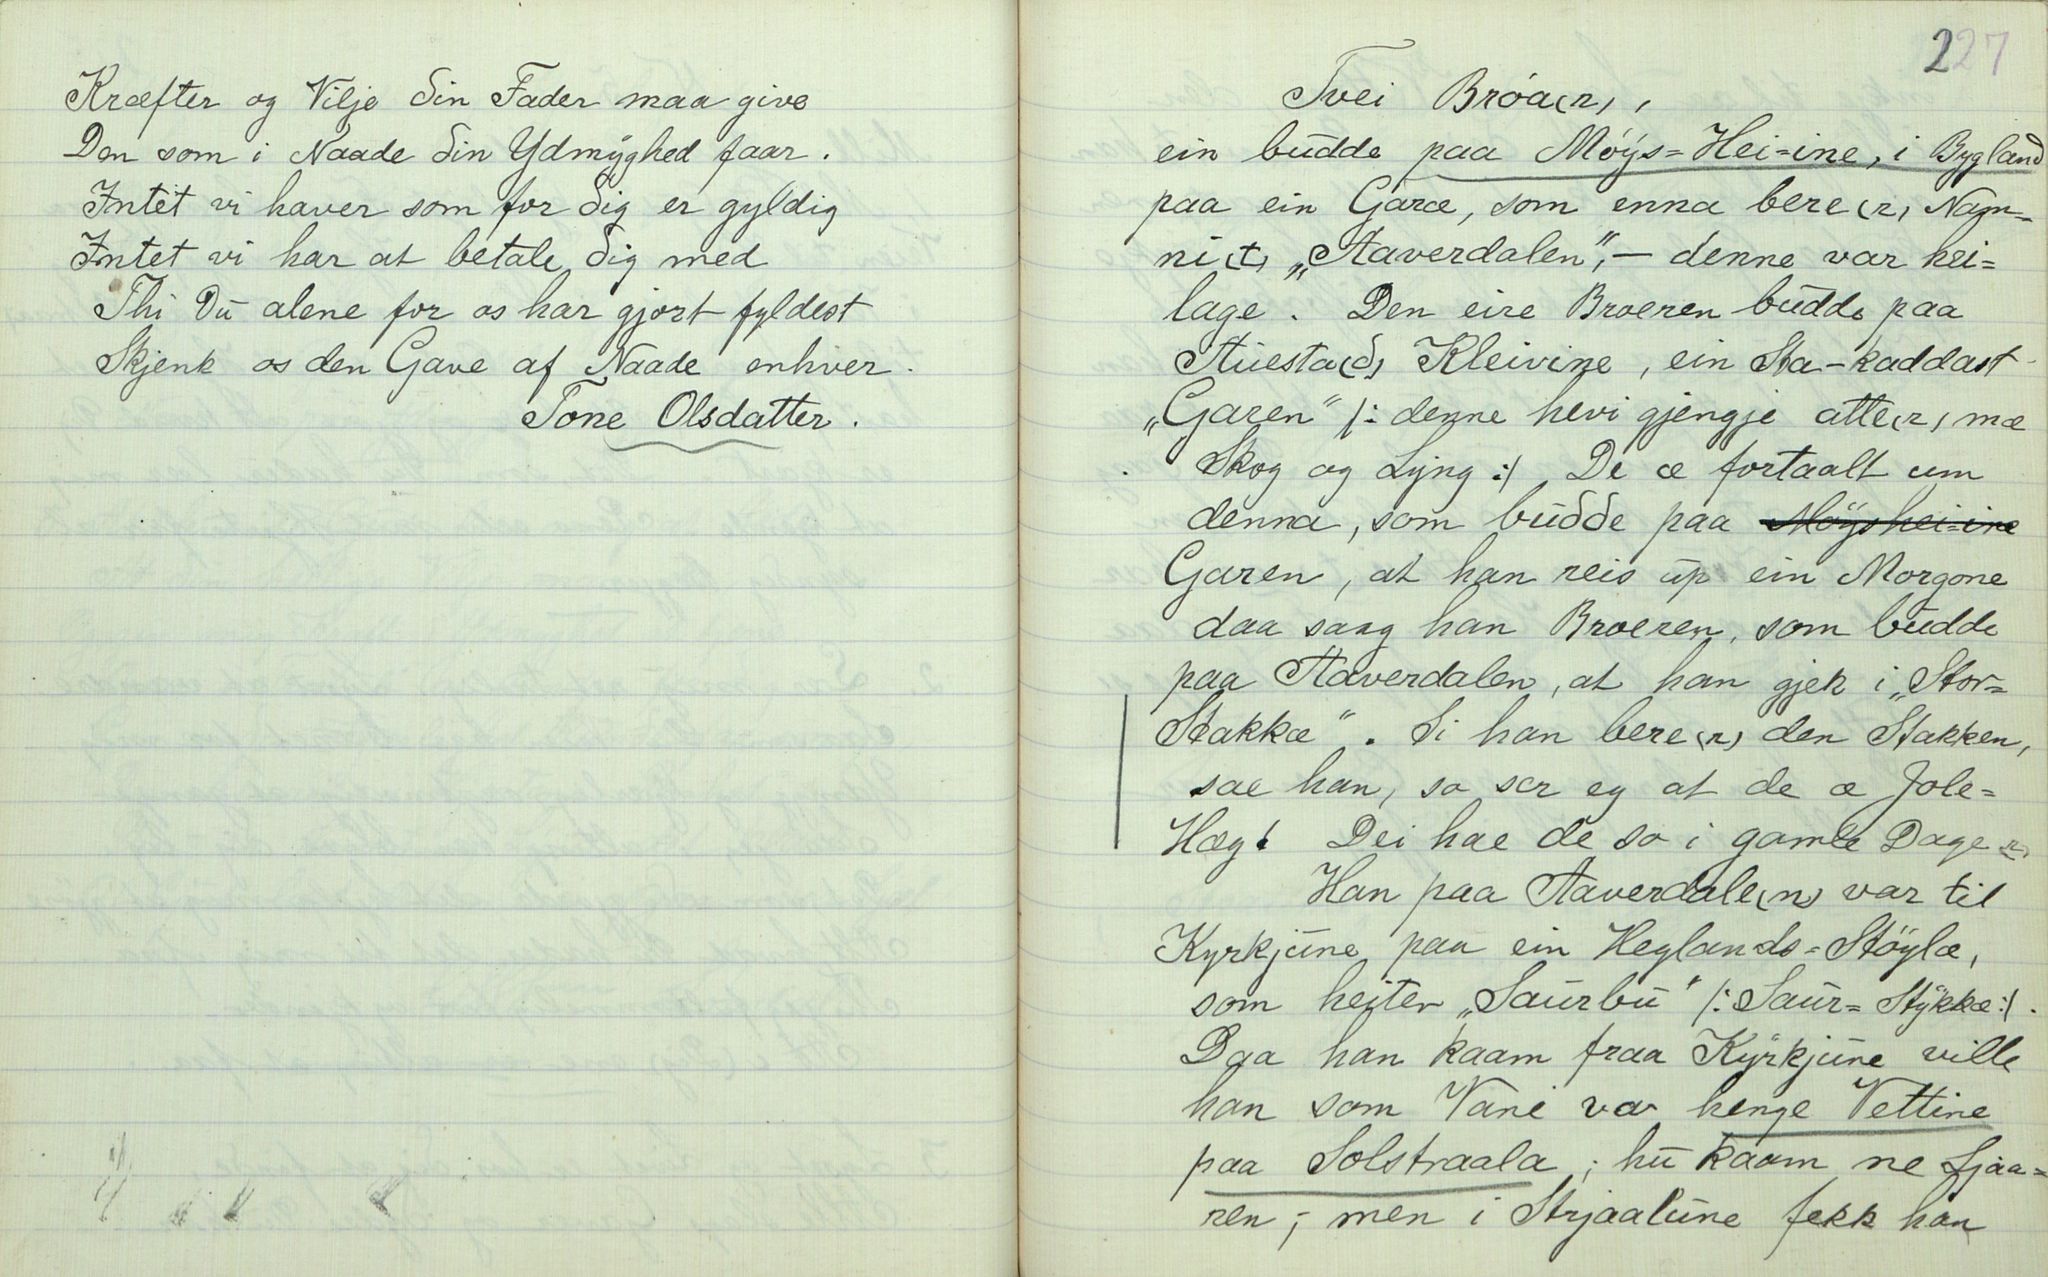 Kræfter og Vilje din Fader maa give
Den som i Naade din Ydmyghed faar.
Intet vi haver som for dig er gyldig
Intet vi har at betale dig med
Thi Du alene for os har gjort fyldest
Skjenk os den Gave af Naade enhver.
Tone Olsdatter.
227
Tvei Bróa(r),
ein budde paa Møys=Hei=ine, i Bygland
paa ein Garæ, som enna bere(r) Nam-
ni(t) „Aaverdalen", - denne var hei=
lage. Den eire Broeren budde paa
Stuesta(d) Kleivine, ein Sta-kaddast
„Garen" /: denne hevi gjengje atte(r) mæ
Skog og Lyng :/ De æ fortaalt um
denna, som budde paa Møyshei=ine
Garen, at han reis up ein Morgone
daa saag han Broeren, som budde
paa Aaverdalen, at han gjek i „Stor=
Stakkæ". Si han bere(r) den Stakken,
sae han, so ser eg at de æ Jole=
Hæg! Dei hae de so i gamle Dage(r)
Han paa Aaverdale(n) var til
Kyrkjune paa ein Heglands=Støylæ,
som heiter „Saurbu" /: Saur=Stykkæ :/.
Daa han kaam fraa Kyrkjune ville
han som Vane var henge Vettine
paa Solstraala; hu kaam ne Ljaa=
ren, - men i Strjaalune fekk han